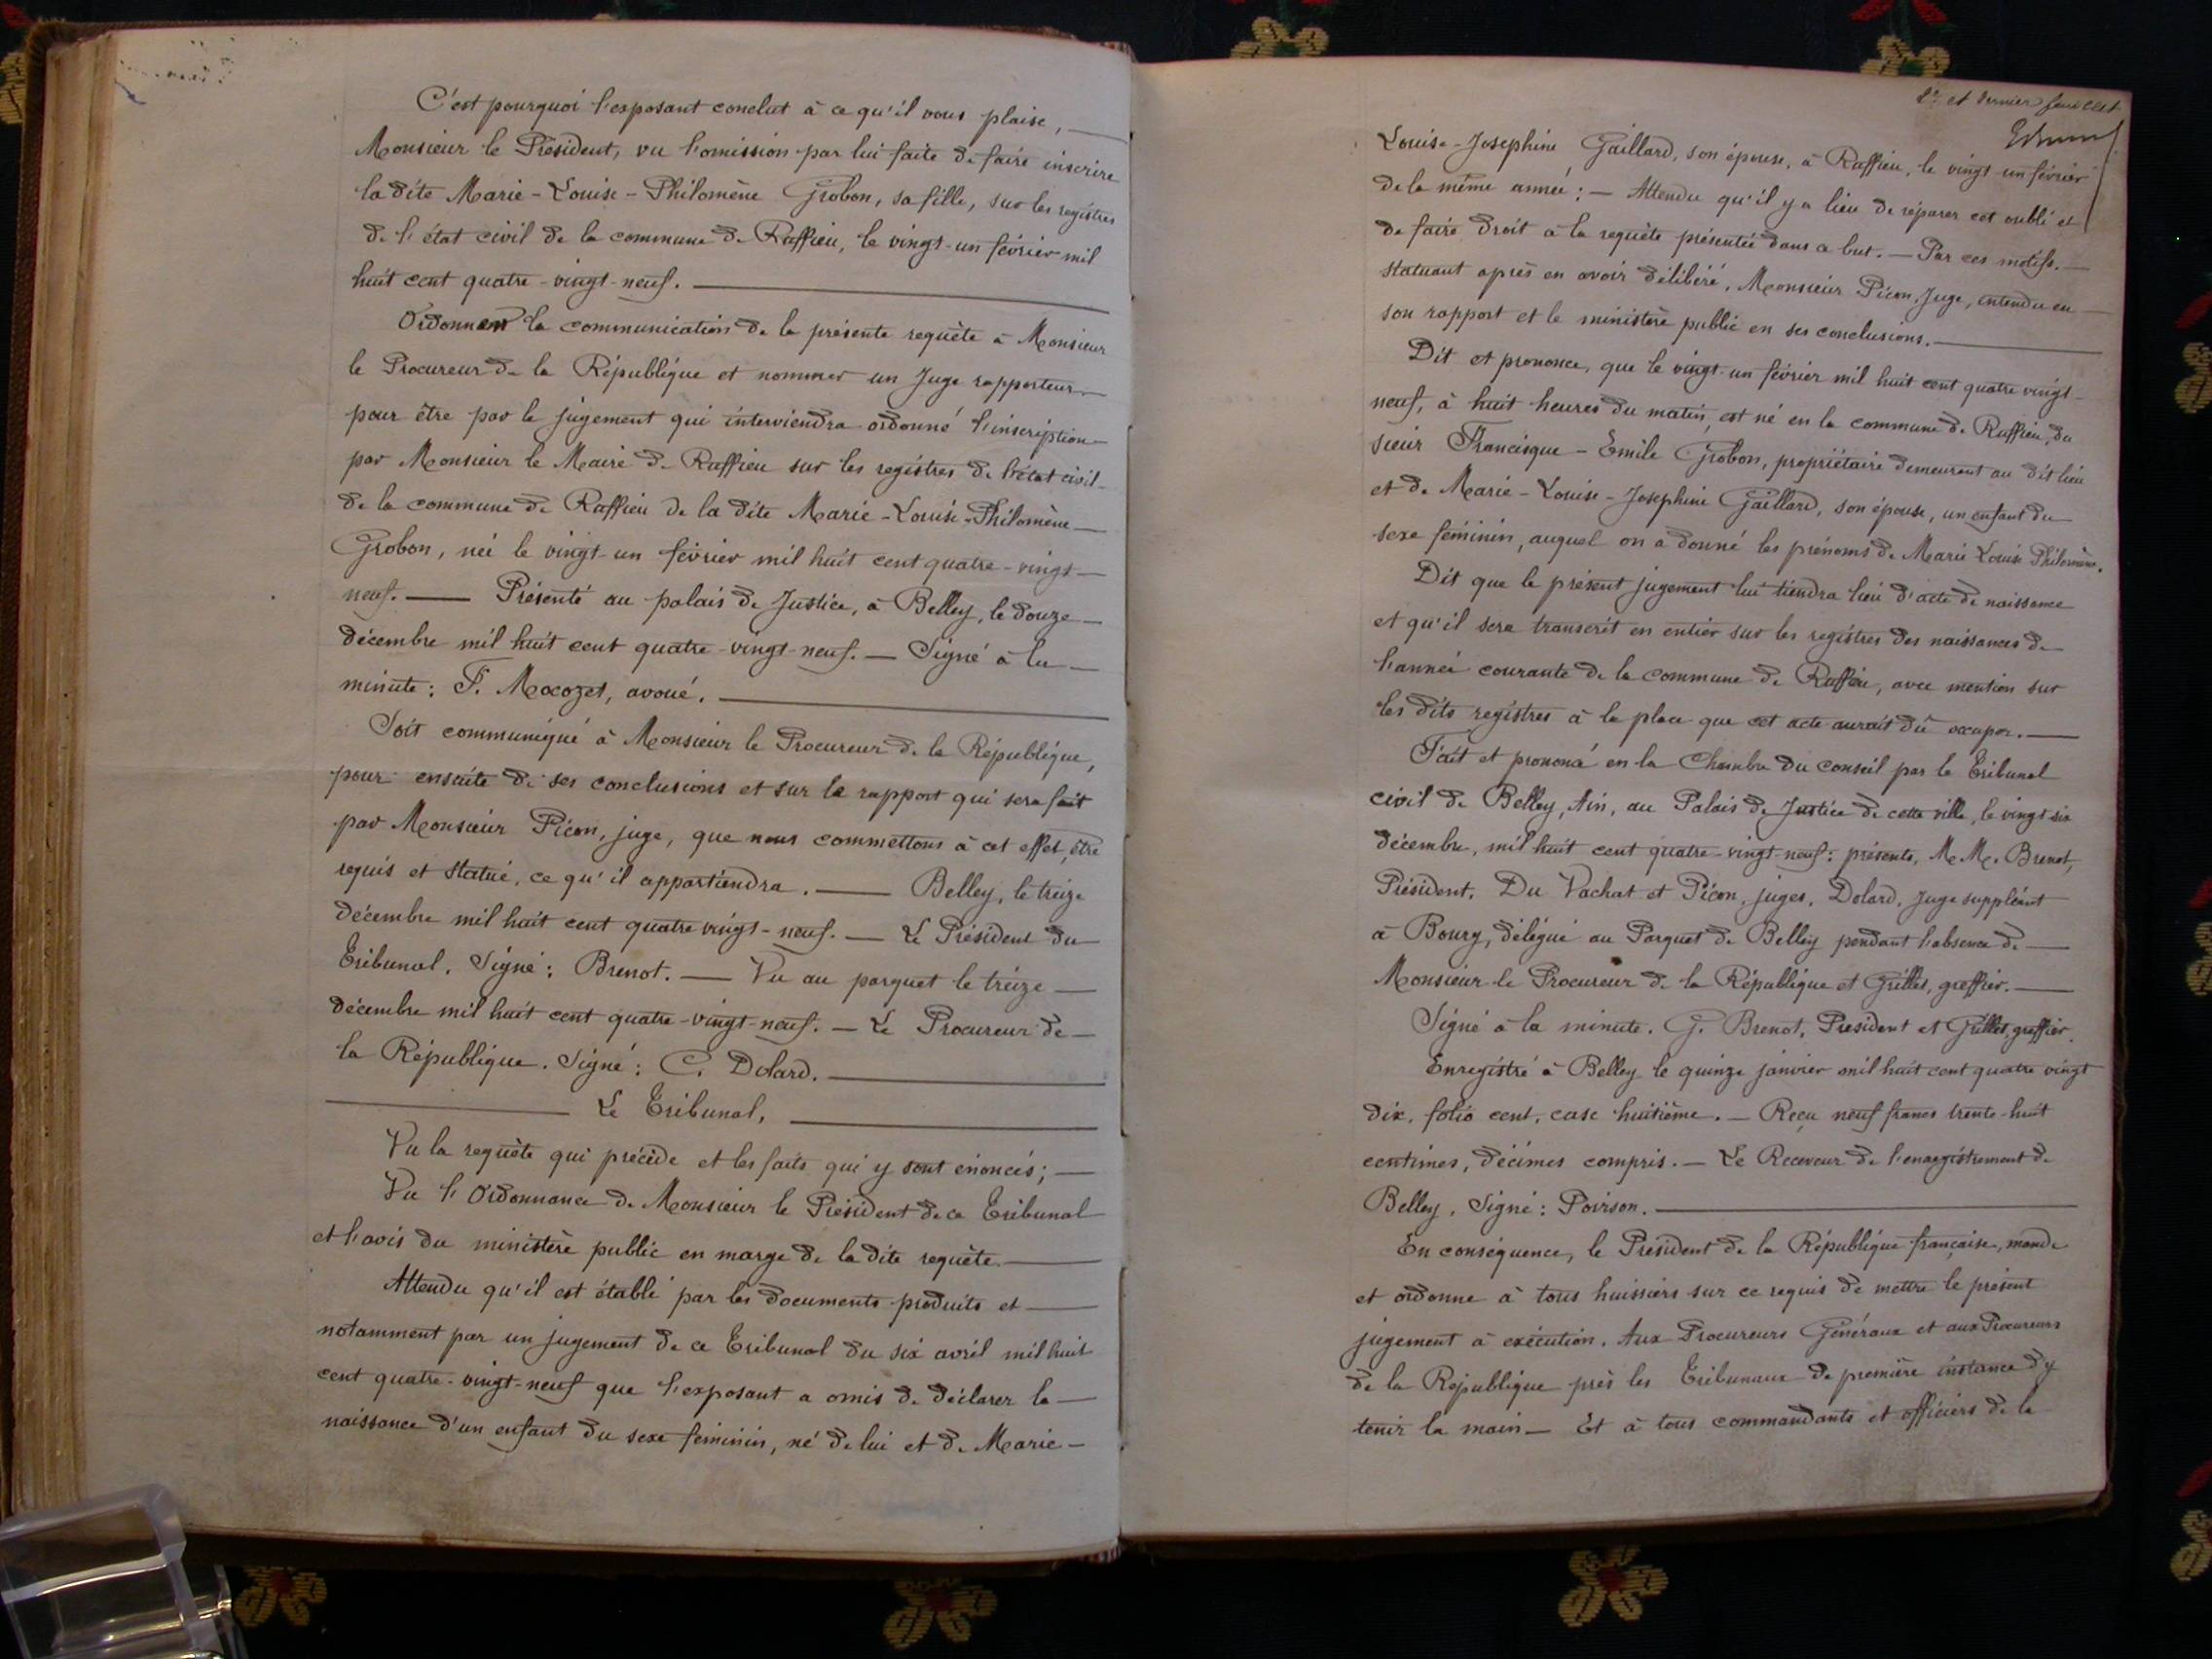 C'est pourquoi l'exposant conclut à ce qu'il vous plaise,
Monsieur le Président, vu l'omission par lui faite de faire inscrire
la dite Marie-Louise-Philomène Grobon, sa fille, sur les registres
de l'état civil de la commune de Ruffieu, le vingt-un février mil
huit cent quatre-vingt-neuf.
Ordonner la communication de la présente requête à Monsieur
le Procureur de la République et nommer un Juge rapporteur
pour être par le jugement qui interviendra ordonné l'inscription
par Monsieur le Maire de Ruffieu sur les registres de l'état civil
de la commune de Ruffieu de la dite Marie-Louise-Philomène
Grobon, née le vingt-un février mil huit cent quatre-vingt-
neuf. — Présenté au palais de Justice, à Belley, le douze
décembre mil huit cent quatre-vingt-neuf. — Signé à la
minute: F. Mocozet, avoué.
Soit communiqué à Monsieur le Procureur de la République,
pour ensuite de ses conclusions et sur le rapport qui sera fait
par Monsieur Picon, juge, que nous commettons à cet effet, être
requis et statué, ce qu'il appartiendra. — Belley, le treize
décembre mil huit cent quatre vingt-neuf. — Le Président du
Tribunal. Signé: Brenot. — Vu au parquet le treize
décembre mil huit cent quatre-vingt-neuf. — Le Procureur de
la République. Signé: C. Dolard.
Le Tribunal,
Vu la requête qui précède et les faits qui y sont énoncés;
Vu l'Ordonnance de Monsieur le Président de ce Tribunal
et l'avis du ministère public en marge de la dite requête.
Attendu qu'il est établi par les documents produits et
notamment par un jugement de ce Tribunal du six avril mil huit
cent quatre-vingt-neuf que l'exposant a omis de déclarer la
naissance d'un enfant du sexe féminin, né de lui et de Marie-
2e et dernier feuillet
Louise-Josephine Gaillard, son épouse, à Ruffieu, le vingt-un février
de la même année: — Attendu qu'il y a lieu de réparer cet oubli et
de faire droit à la requête présentée dans ce but. — Par ces motifs. —
Statuant après en avoir délibéré, Monsieur Picon, Juge, entendu en
son rapport et le ministère public en ses conclusions.
Dit et prononce, que le vingt-un février mil huit cent quatre vingt-
neuf, à huit heures du matin, est né en la commune de Ruffieu, du
sieur Francisque-Emile Grobon, propriétaire demeurant au dit lieu
et de Marie-Louise-Josephine Gaillard, son épouse, un enfant du
sexe féminin, auquel on a donné les prénoms de Marie Louise Philomène.
Dit que le présent jugement lui tiendra lieu d'acte de naissance
et qu'il sera transcrit en entier sur les registres des naissances de
l'année courante de la commune de Ruffieu, avec mention sur
les dits registres à la place que cet acte aurait dû occuper.
Fait et prononcé en la Chambre du conseil par le Tribunal
civil de Belley, Ain, au Palais de Justice de cette ville, le vingt-six
décembre, mil huit cent quatre-vingt-neuf: présents, M.M. Brenot,
Président, Du Vachat et Picon, juges, Dolard, Juge suppléant
à Bourg, délégué au Parquet de Belley pendant l'absence de
Monsieur le Procureur de la République et Grillet, greffier.
Signé à la minute. G. Brenot, Président et Grillet, greffier.
Enregistré à Belley le quinze janvier mil huit cent quatre vingt
dix, folio cent, case huitième. — Reçu neuf francs trente-huit
centimes, décimes compris. — Le Receveur de l'enregistrement de
Belley, Signé: Poirson.
En conséquence, le Président de la République française, mande
et ordonne à tous huissiers sur ce requis de mettre le présent
jugement à exécution. Aux Procureurs Généraux et aux Procureurs
de la République près les Tribunaux de première instance d'y
tenir la main — Et à tous commandants et officiers de la